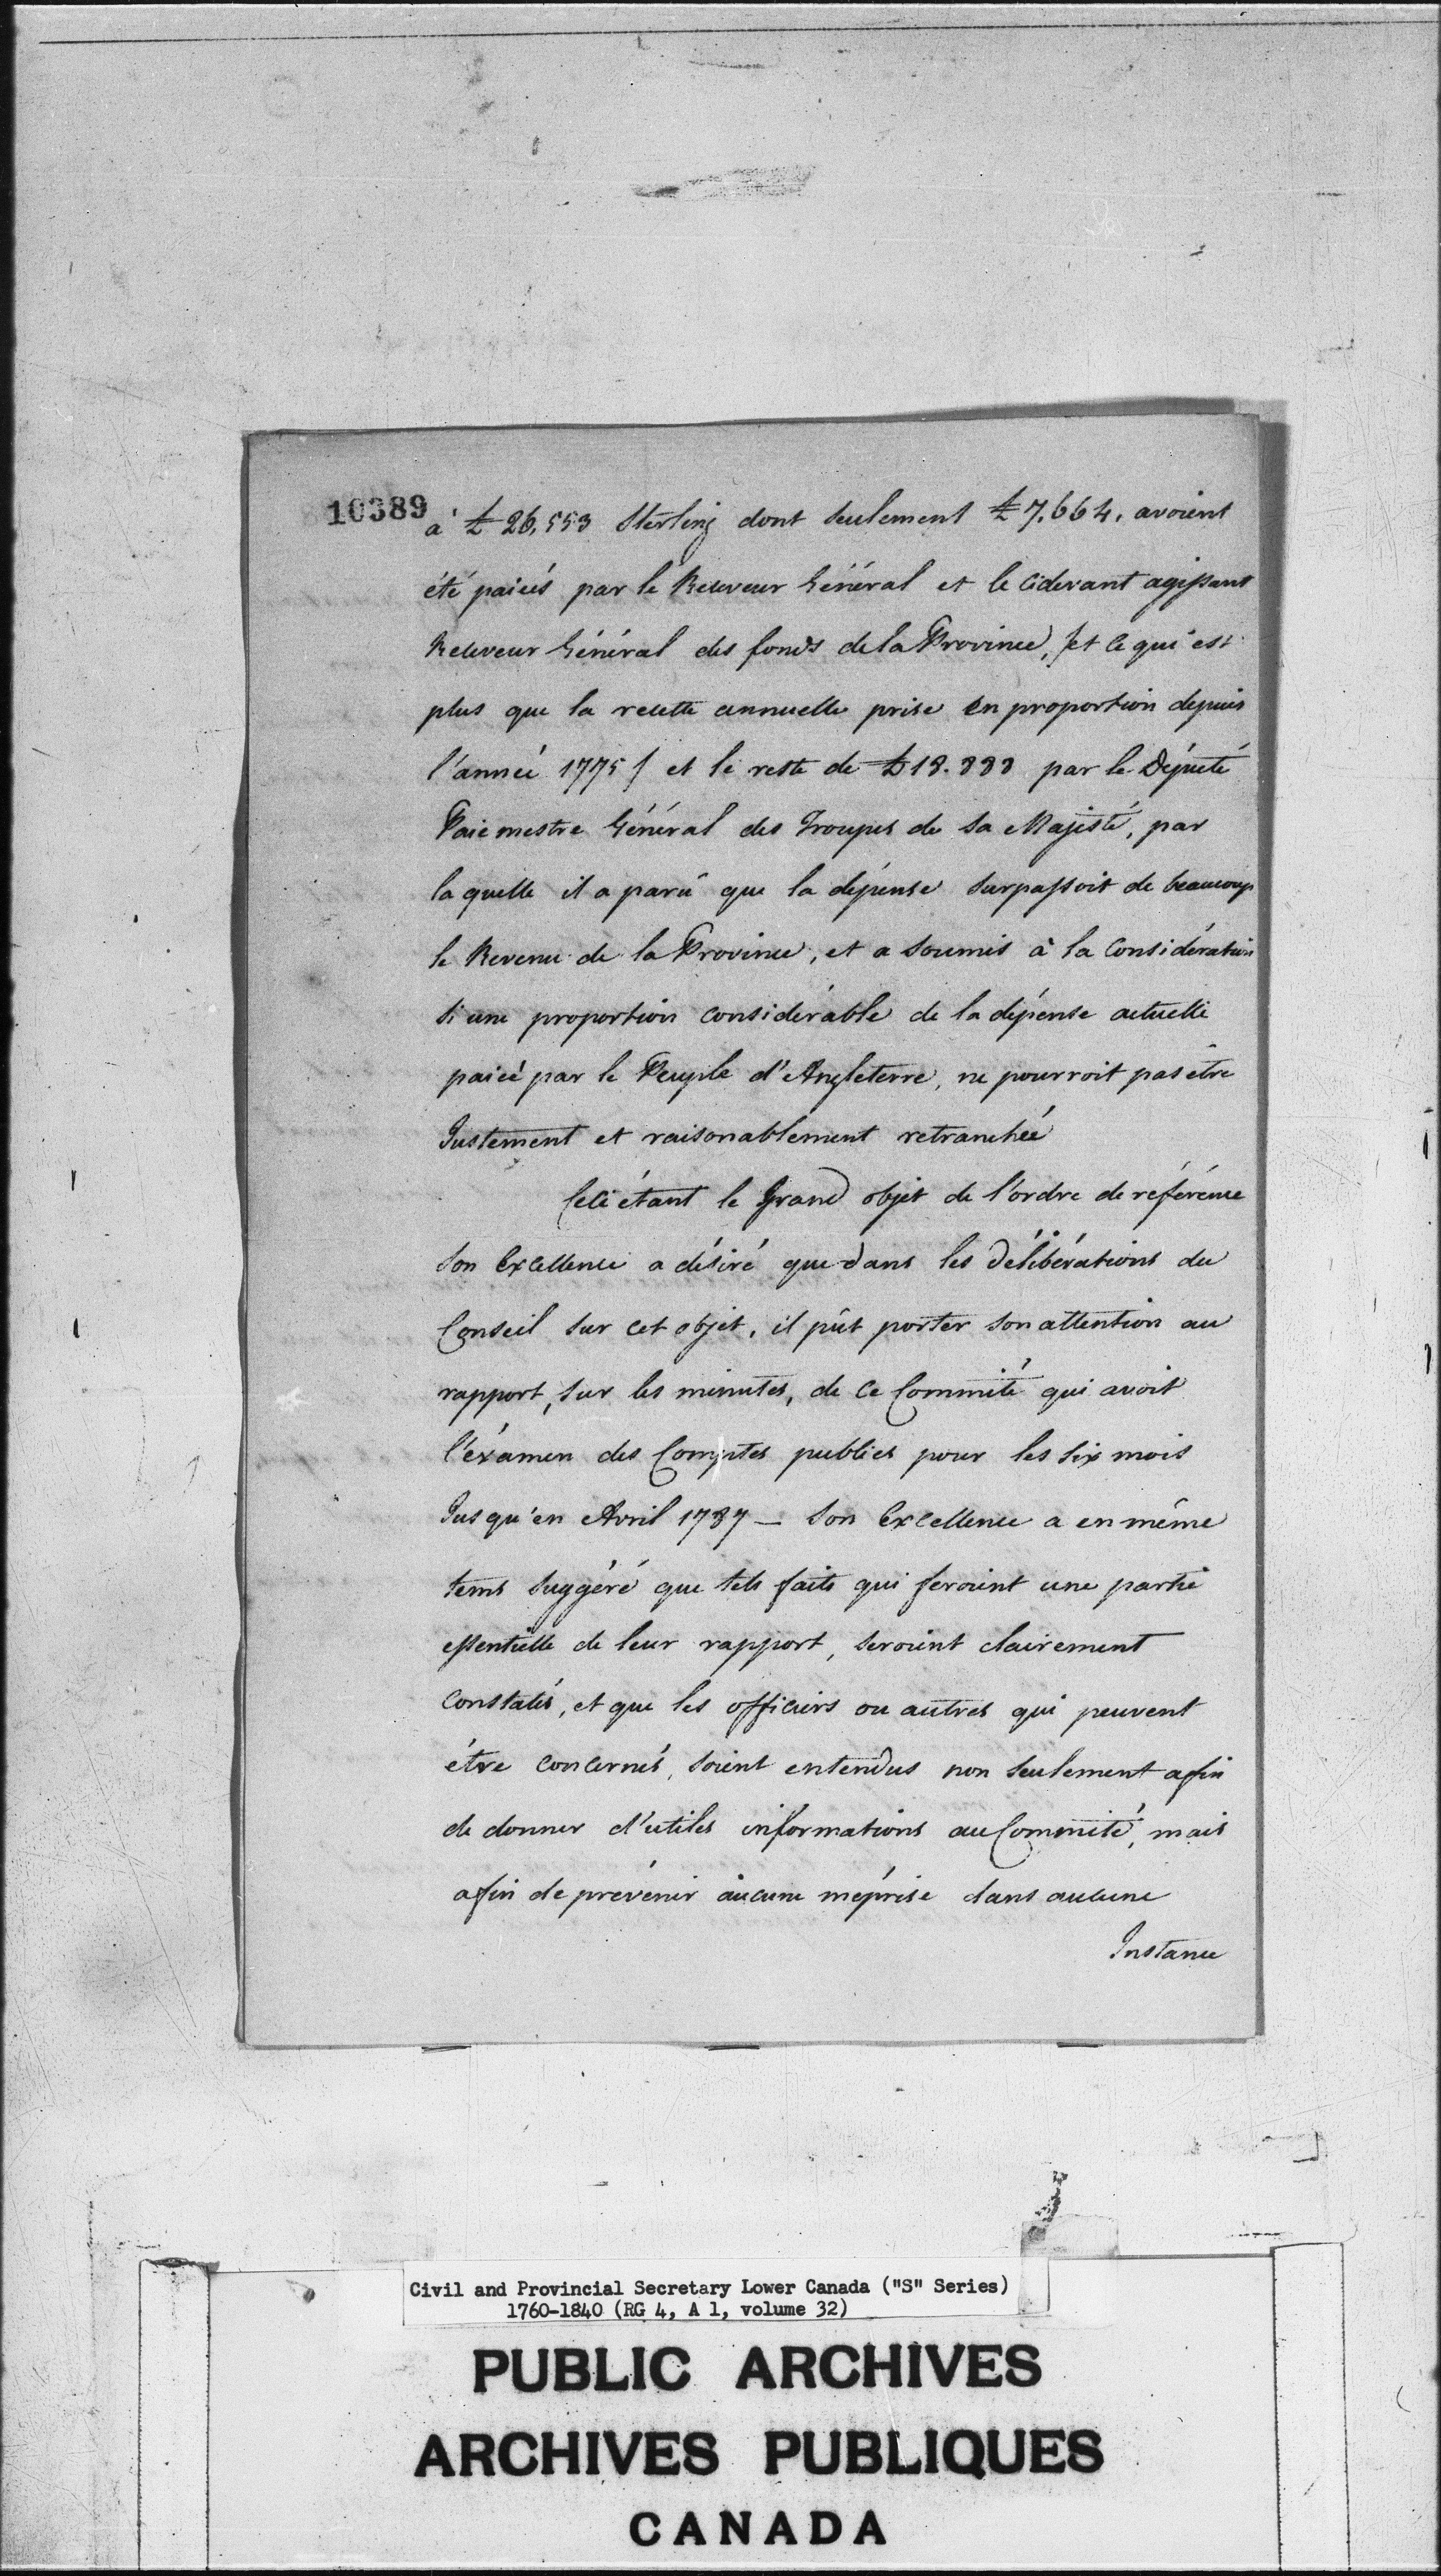 10389
à £ 26,553 Sterling dont seulement £ 7,664, avoient
été paiées par le Receveur Général et le cidevant agissant
Receveur Général des fonds de la Province, /et ce qui est
plus que la recette annuelle prise en proportion depuis
l'année 1775/ et le reste de £ 18.888 par le Député
Paie mestre Général des Troupes de Sa Majesté, par
laquelle il a parû que la dépense surpassoit de beaucoup
le Revenu de la Province, et a soumis à la Considération
si une proportion considérable de la dépense actuelle
paiée par le Peuple d'Angleterre, ne pourroit pas être
Justement et raisonablement retranchée
Celà étant le Grand objet de l'ordre de référence
Son Excellence a désiré que dans les délibérations du
Conseil sur cet objet, il pût porter son attention au
rapport, sur les minutes, de ce Committé qui avoit
l'éxamen des Comptes publics pour les Six mois
Jusqu'en Avril 1787 — Son Excellence a en même
tems suggéré que tels faits qui feroient une partie
essentielle de leur rapport, seroient clairement
constatés, et que les officiers ou autres qui peuvent
être concernés, soient entendus non seulement afin
de donner d'utiles informations au Committé, mais
afin de prévenir aucune méprise dans aucune
Instance
Civil and Provincial Secretary Lower Canada ("S" Series)
1760-1840 (RG 4, A 1, volume 32)
PUBLIC ARCHIVES
ARCHIVES PUBLIQUES
CANADA